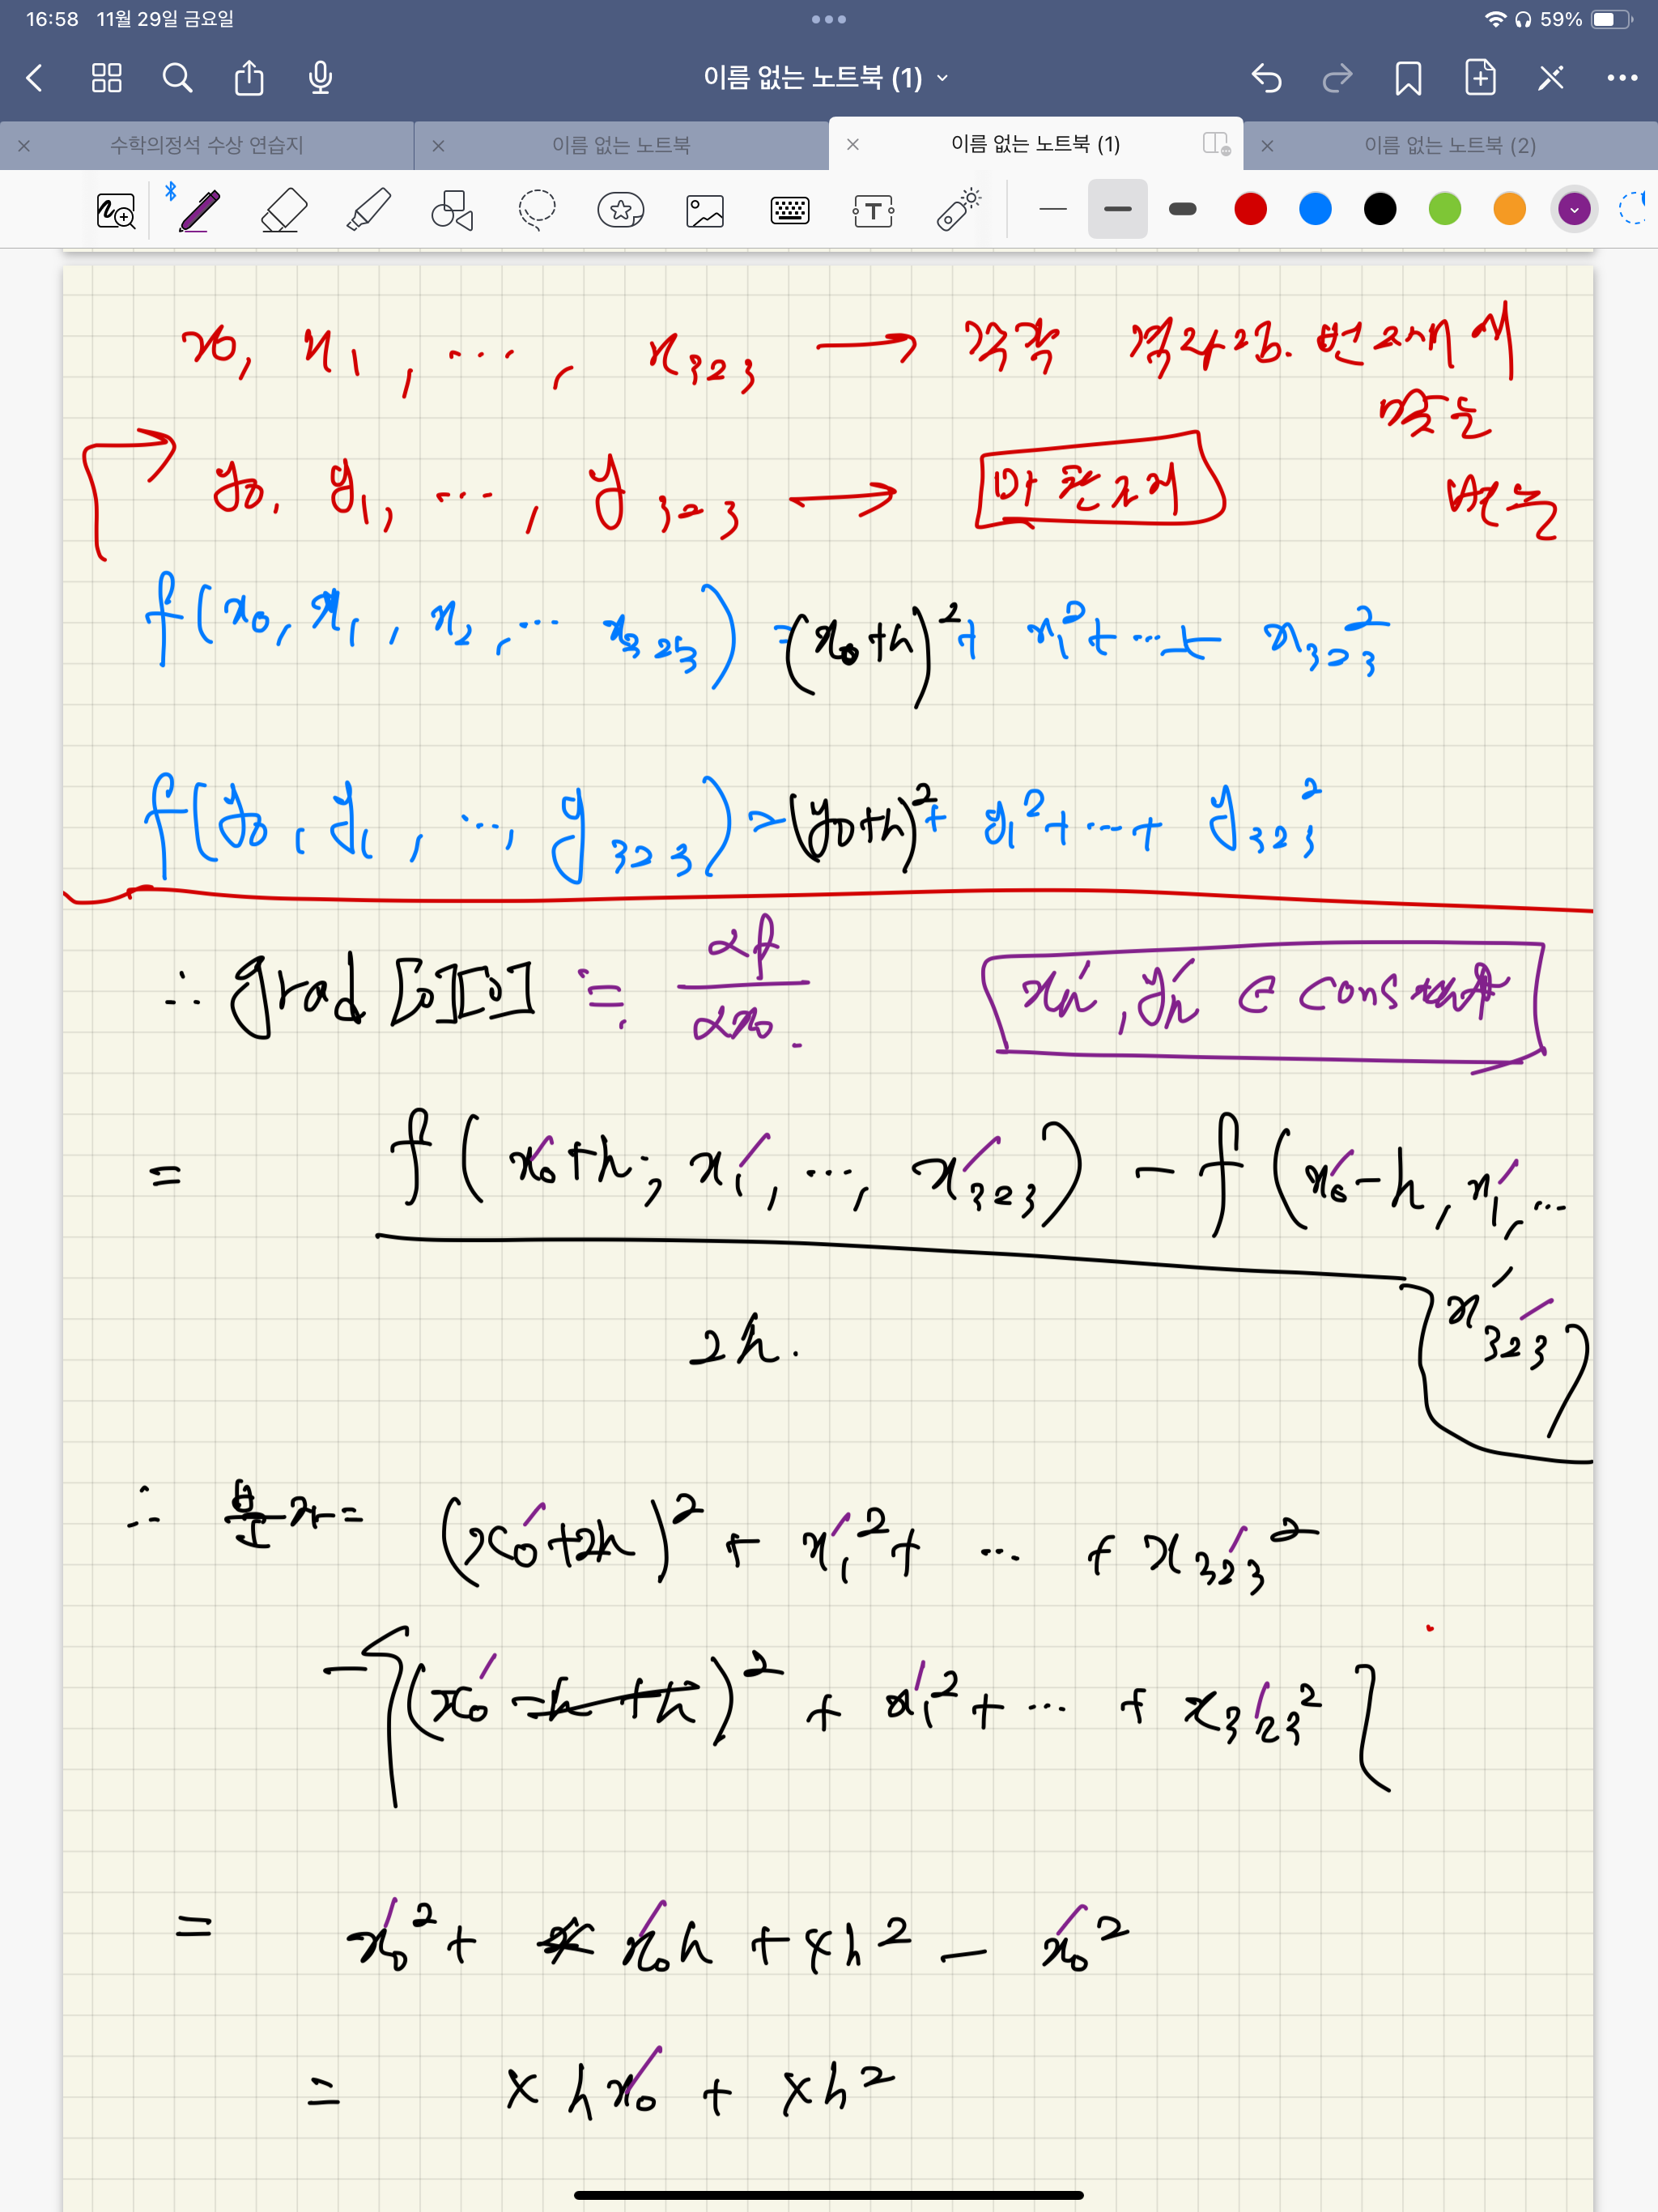 16:58 11월 29일 금요일 59%
이름 없는 노트북 (1)
수학의정석 수상 연습지 이름 없는 노트북 이름 없는 노트북 (1) 이름 없는 노트북 (2)
T
x0, x1, ..., x323 →
y0, y1, ..., y323 → 마찬가지
f(x0, x1, x2, ... x323) = (x0+h)² + x1² + ... + x323²
f(y0, y1, ..., y323) = (y0+h)² + y1² + ... + y323²
∴ grad [0][0] = αf/αx0. xn', yn' ∈ constant
= f(x0'+h, x1', ..., x'323) - f(x0'-h, x1', ...
x'323)
2h.
∴ 분자= (x0'+2h)² + x1'² + ... + x'323²
- {(x0' -h +h)² + x1'² + ... + x'323² }
= x0'² + 4x0'h + 4h² - x0'²
= 4hx0' + 4h²